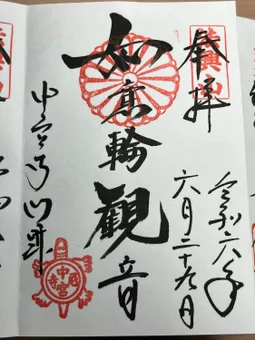 奉拝
法興山
令和六年
六月二十九日
如意輪觀音
中宮寺門跡